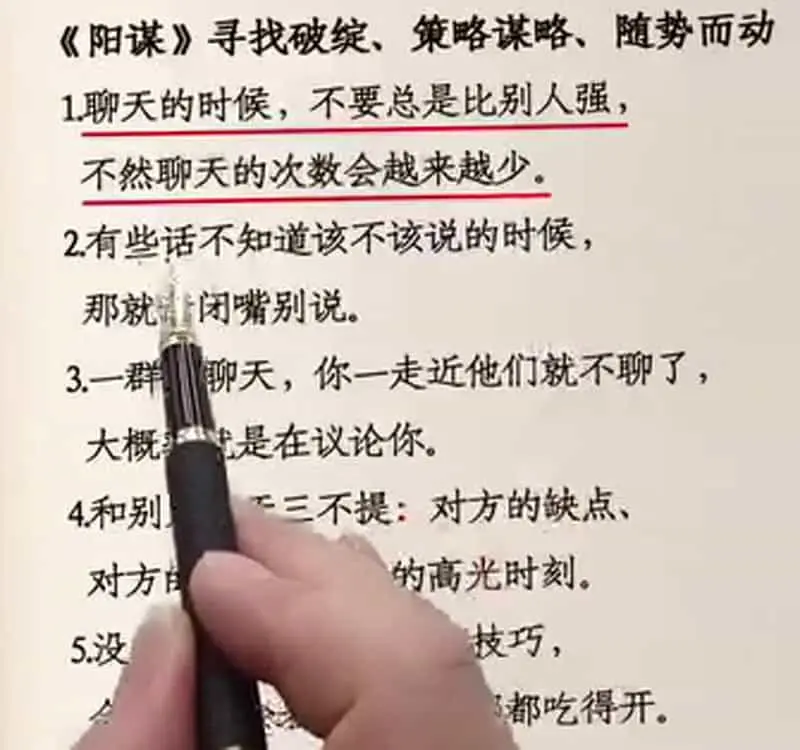 《阳谋》寻找破绽、策略谋略、随势而动
1.聊天的时候，不要总是比别人强，
不然聊天的次数会越来越少。
2.有些话不知道该不该说的时候，
那就 闭嘴别说。
3.一群 聊天，你一走近他们就不聊了，
大概 就是在议论你。
4.和别 三不提：对方的缺点、
对方的 的高光时刻。
5.没 技巧，
都吃得开。